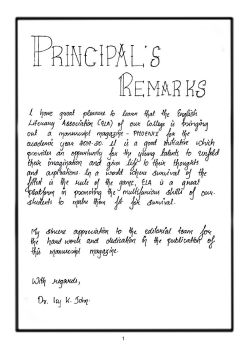 PRINCIPAL'S
REMARKS
I have great pleasure to learn that the English
Literary Association (ELA) of our College is bringing
out a manuscript magazine - PHOENIX for the
academic year 2019-20. It is a great initiative which
provides an opportunity for the young talents to unfold
their imagination and give life to their thoughts
and aspirations. In a world where survival of the
fittest is the rule of the game, ELA is a great
platform in promoting the multifarious skills of our
students to make them fit for survival.
My sincere appreciation to the editorial team for
the hard work and dedication in the publication of
this manuscript magazine.
With regards,
Dr. K. John
1